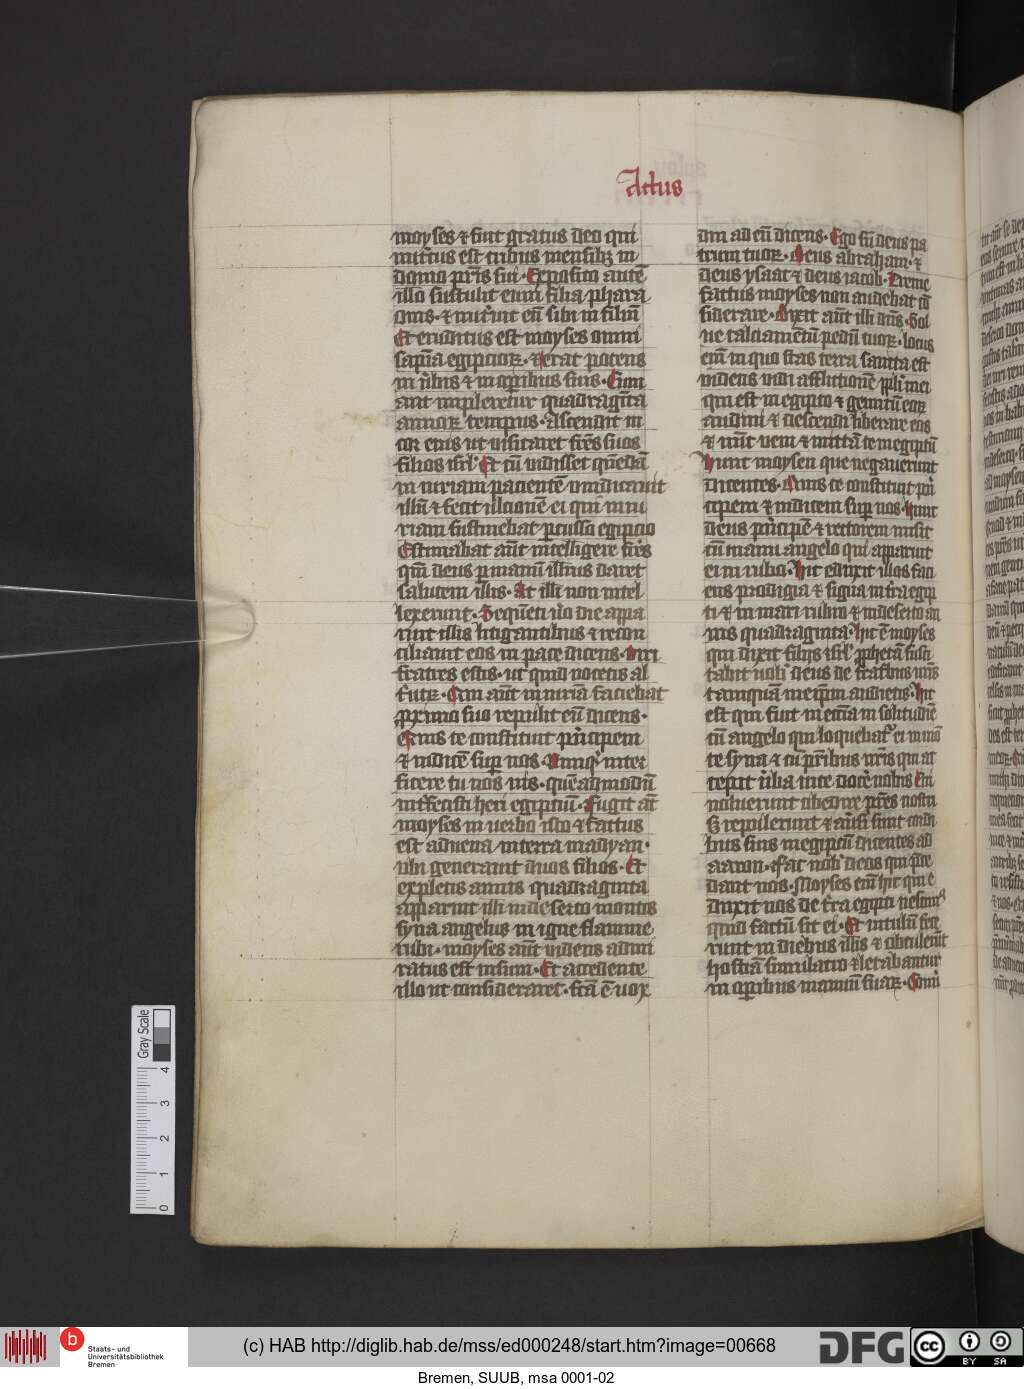 Actus
moyses ⁊ fuit gratus deo qui
nutritus est tribus mensibꝫ in
domo pr̄is sui · Exposito autē
illo sustulit eum filia phara
onis · ⁊ nutriuit eū sibi in filiū
Et eruditus est moyses omni
sapiētia egipcioꝝ · ⁊ erat potens
in v̄bis ⁊ in oꝑibus suis · Cum
aut impleretur quadragīta
annoꝝ tempus · Ascendit in
cor eius ut visitaret fr̄es suos
filios isrl̄ · Et cū vidisset quēdā
in iuriam pacientē vindicauit
illū ⁊ fecit ulcionē ei qui iniu
riam sustinebat ꝑcusso egipcio
Estimabat aūt intelligere fr̄es
qm̄ deus ꝑ manū illius daret
salutem illis · At illi non intel
lexerunt · Sequēti v̄o die appa
ruit illis litigantibus ⁊ recon
ciliauit eos in pace dicens · viri
fratres estis · ut quid nocetis al
t̄utꝝ · Qui aūt iniuriā faciebat
ꝓximo suo repulit eū dicens ·
Quis te constituit pͥncipem
⁊ iudicē suꝑ nos · Numqͥd inter
ficere tu uos uis · quēadmodū
int̄fecisti heri egiptiū · Fugit aūt
moyses in uerbo isto ⁊ factus
est aduena in terra madyan ·
ubi generauit duos filios · Et
expletis annis quadraginta
apparuit illi in deserto montis
syna angelus in igne flamme
rubi · moyses aūt videns admi
ratus est uisum · Et accedente
illo ut consideraret · scā ē uox
dm̄ ad eū dicens · Ego sū deus pa
trum tuoꝝ · Deus abraham · ⁊
deus ysaac ⁊ deus iacob · Treme
factus moyses non audebat cō
siderare · Dixit aūt illi dn̄s · Sol
ue calciamētū pedū tuoꝝ · locus
eī in quo stas terra sancta est
uidens uidi afflictionē ppl̄i mei
qui est in egipto ⁊ gemitū eoꝝ
audiui ⁊ descendi liberare eos
⁊ nūc veni ⁊ mittā te in egiptū
hunc moysen que negauerunt
dicentes · Quis te constituit pͥn
cipem ⁊ iudicem suꝑ nos · hunc
deus pͥncipē ⁊ rectorem misit
cū manu angelo qui apparuit
ei in rubo · hic eduxit illos faci
ens prodigia ⁊ signa in tr̄a egip
ti ⁊ in mari rubro ⁊ in deserto an
nis quadraginta · hic ē moyses
qui dixit filijs isrl̄ ꝓphetā susci
tabit uobͥ deus de fratribus ur̄is
tamquā meip̄m audietis · hic
est qui fuit in ecc̄ia in solitudīe
cū angelo qui loquebatᷣ ei in mō
te syna ⁊ cū pr̄ibus nr̄is qui ac
cepit v̄ba uite dare nobis Cui
noluerunt obedire pr̄es nostri
S repulerunt ⁊ au̇si sunt cordi
bus suis in egiptū dicentes ad
aaron · Fac nobͥ deos qui p̄ce
dant nos · Moyses eī hic qui e
duxit nos de tr̄a egipti nescimꝰ
quid factū sit ei · Et uitulū fece
runt in diebus illis ⁊ obtulerūt
hostiā simulacro ⁊ letabantur
in oꝑibus manuū suaꝝ · Conū
(c) HAB http://diglib.hab.de/mss/ed000248/start.htm?image=00668
Bremen, SUUB, msa 0001-02
Staats- und
Universitätsbibliothek
Bremen
DFG
Gray Scale
0 1 2 3 4
BY SA